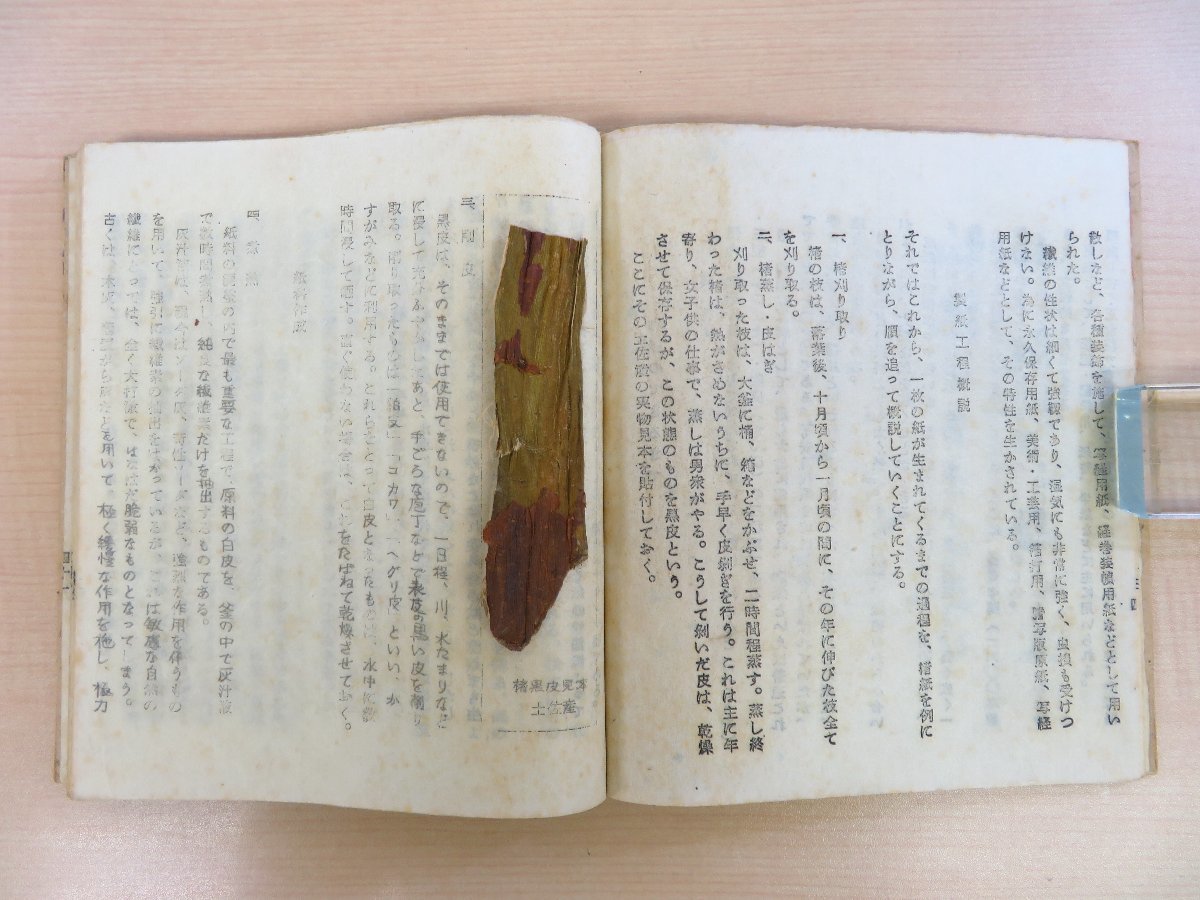 散しなど、各種装飾を施して、写経用紙、経巻装幀用紙などとして用い
られた。
繊維の性状は細くて強靱であり、湿気にも非常に強く、虫損も受けつ
けない。為に永久保存用紙、美術・工芸用、箔打用、謄写版原紙、写経
用紙などとして、その特性を生かされている。
製紙工程概説
それではこれから、一枚の紙が生まれてくるまでの過程を、楮紙を例に
とりながら、順を追って概説していくことにする。
一、楮刈り取り
楮の枝は、落葉後、十月頃から一月頃の間に、その年に伸びた枝全て
を刈り取る。
二、楮蒸し・皮はぎ
刈り取った枝は、大釜に桶、箱などをかぶせ、二時間程蒸す。蒸し終
わった楮は、熱がさめないうちに、手早く皮剝ぎを行う。これは主に年
寄り、女子供の仕事で、蒸しは男衆がやる。こうして剝いだ皮は、乾燥
させて保存するが、この状態のものを黒皮という。
ここにその土佐産の実物見本を貼付しておく。
三四
楮黒皮見本
土佐産
三、削皮
黒皮は、そのままでは使用できないので、一日程、川、水たまりなど
に浸して充分ふやかしてあと、手ごろな庖丁などで表皮の黒い皮を削り
取る。削り取ったものは「粕皮」「コカワ」「ヘグリ皮」といい、か
すがみなどに利用する。これらをとって白皮となったものは、水中に数
時間浸して晒す。直ぐ使わない場合は、これをたばねて乾燥させておく。
紙料作成
四、煮熟
紙料の処理の内で最も重要な工程で、原料の白皮を、釜の中で灰汁液
で数時間煮熟し、純良な繊維素だけを抽出するものである。
灰汁液は、現今はソーダ灰、苛性ソーダなど、強烈な作用を伴うもの
を用いて、強引に繊維素の抽出をはかっているが、これは敏感な自然の
繊維にとっては、全く大打撃で、はなはだ脆弱なものとなってしまう。
古くは、木灰、石灰から灰などを用いて、極く緩慢な作用を施し、極力